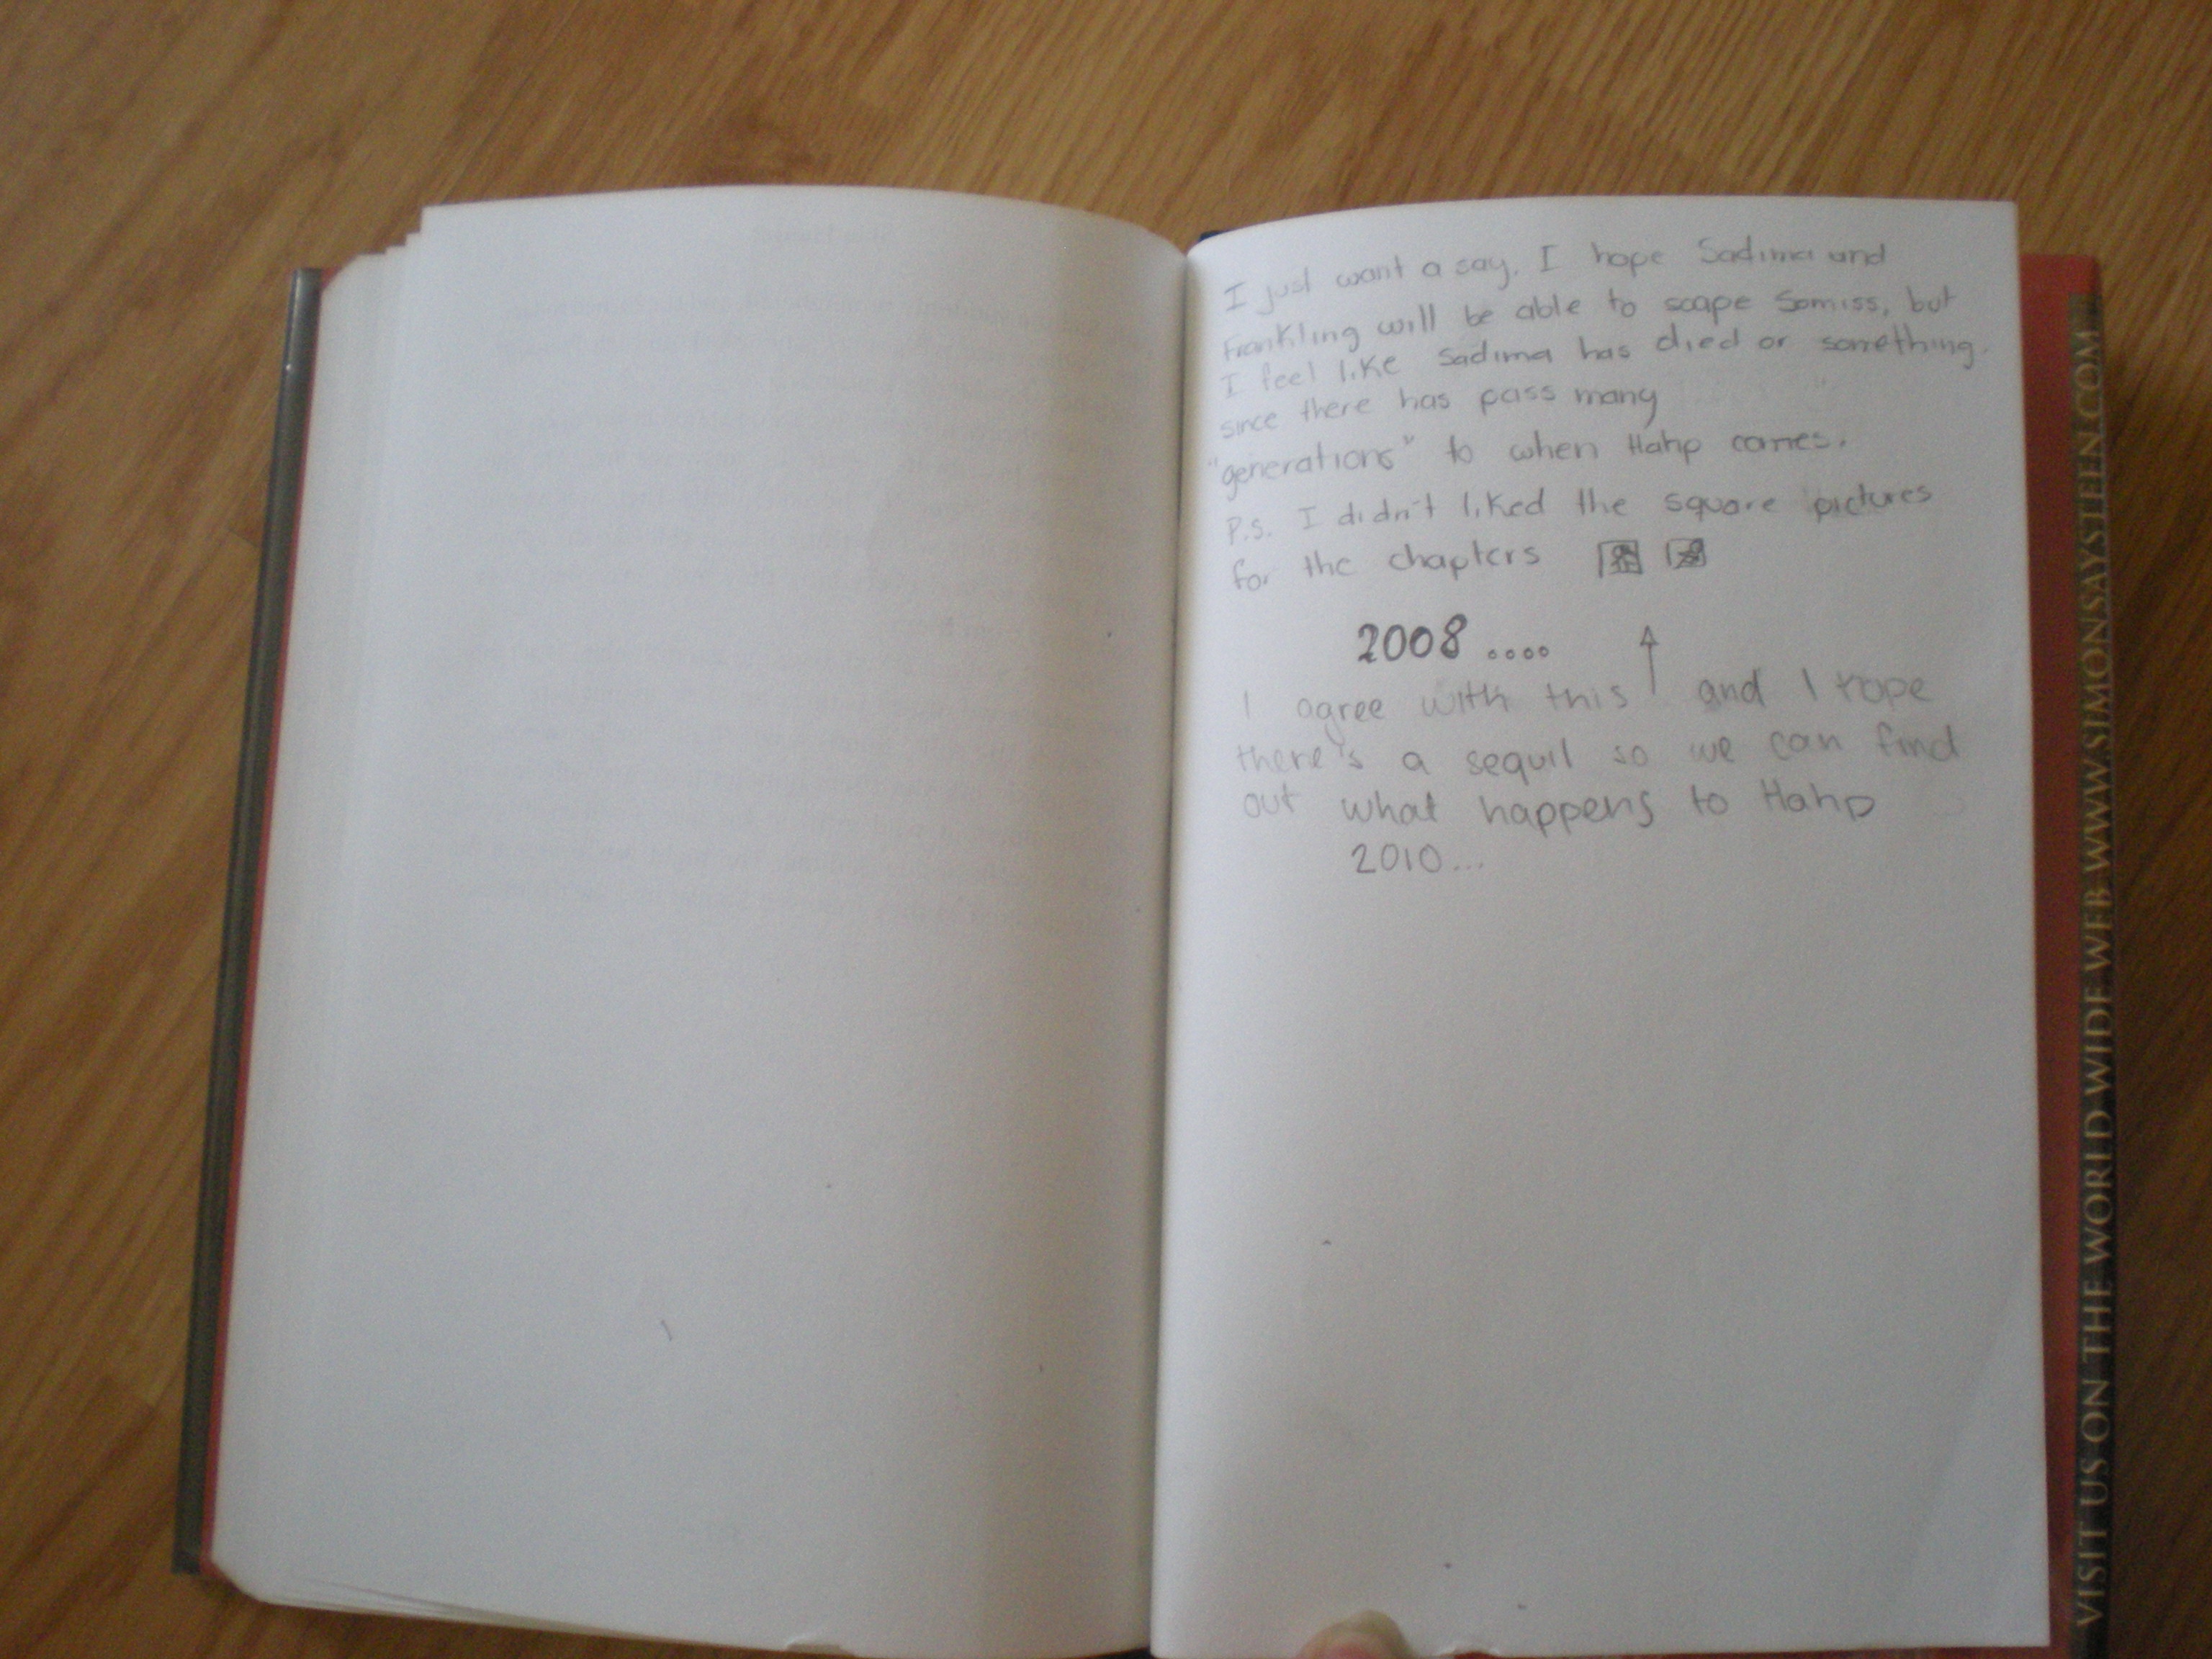 I just want a say. I hope Sadima and
Frankling will be able to scape Somiss, but
I feel like Sadima has died or something.
since there has pass many
"generations" to when Hahp comes.
P.s. I didn't liked the square pictures
for the chapters
2008 ....
I agree with this ↑ and I hope
there's a sequil so we can find
out what happens to Hahp
2010...
VISIT US ON THE WORLD WIDE WEB WWW.SIMONSAYSTEEN.COM